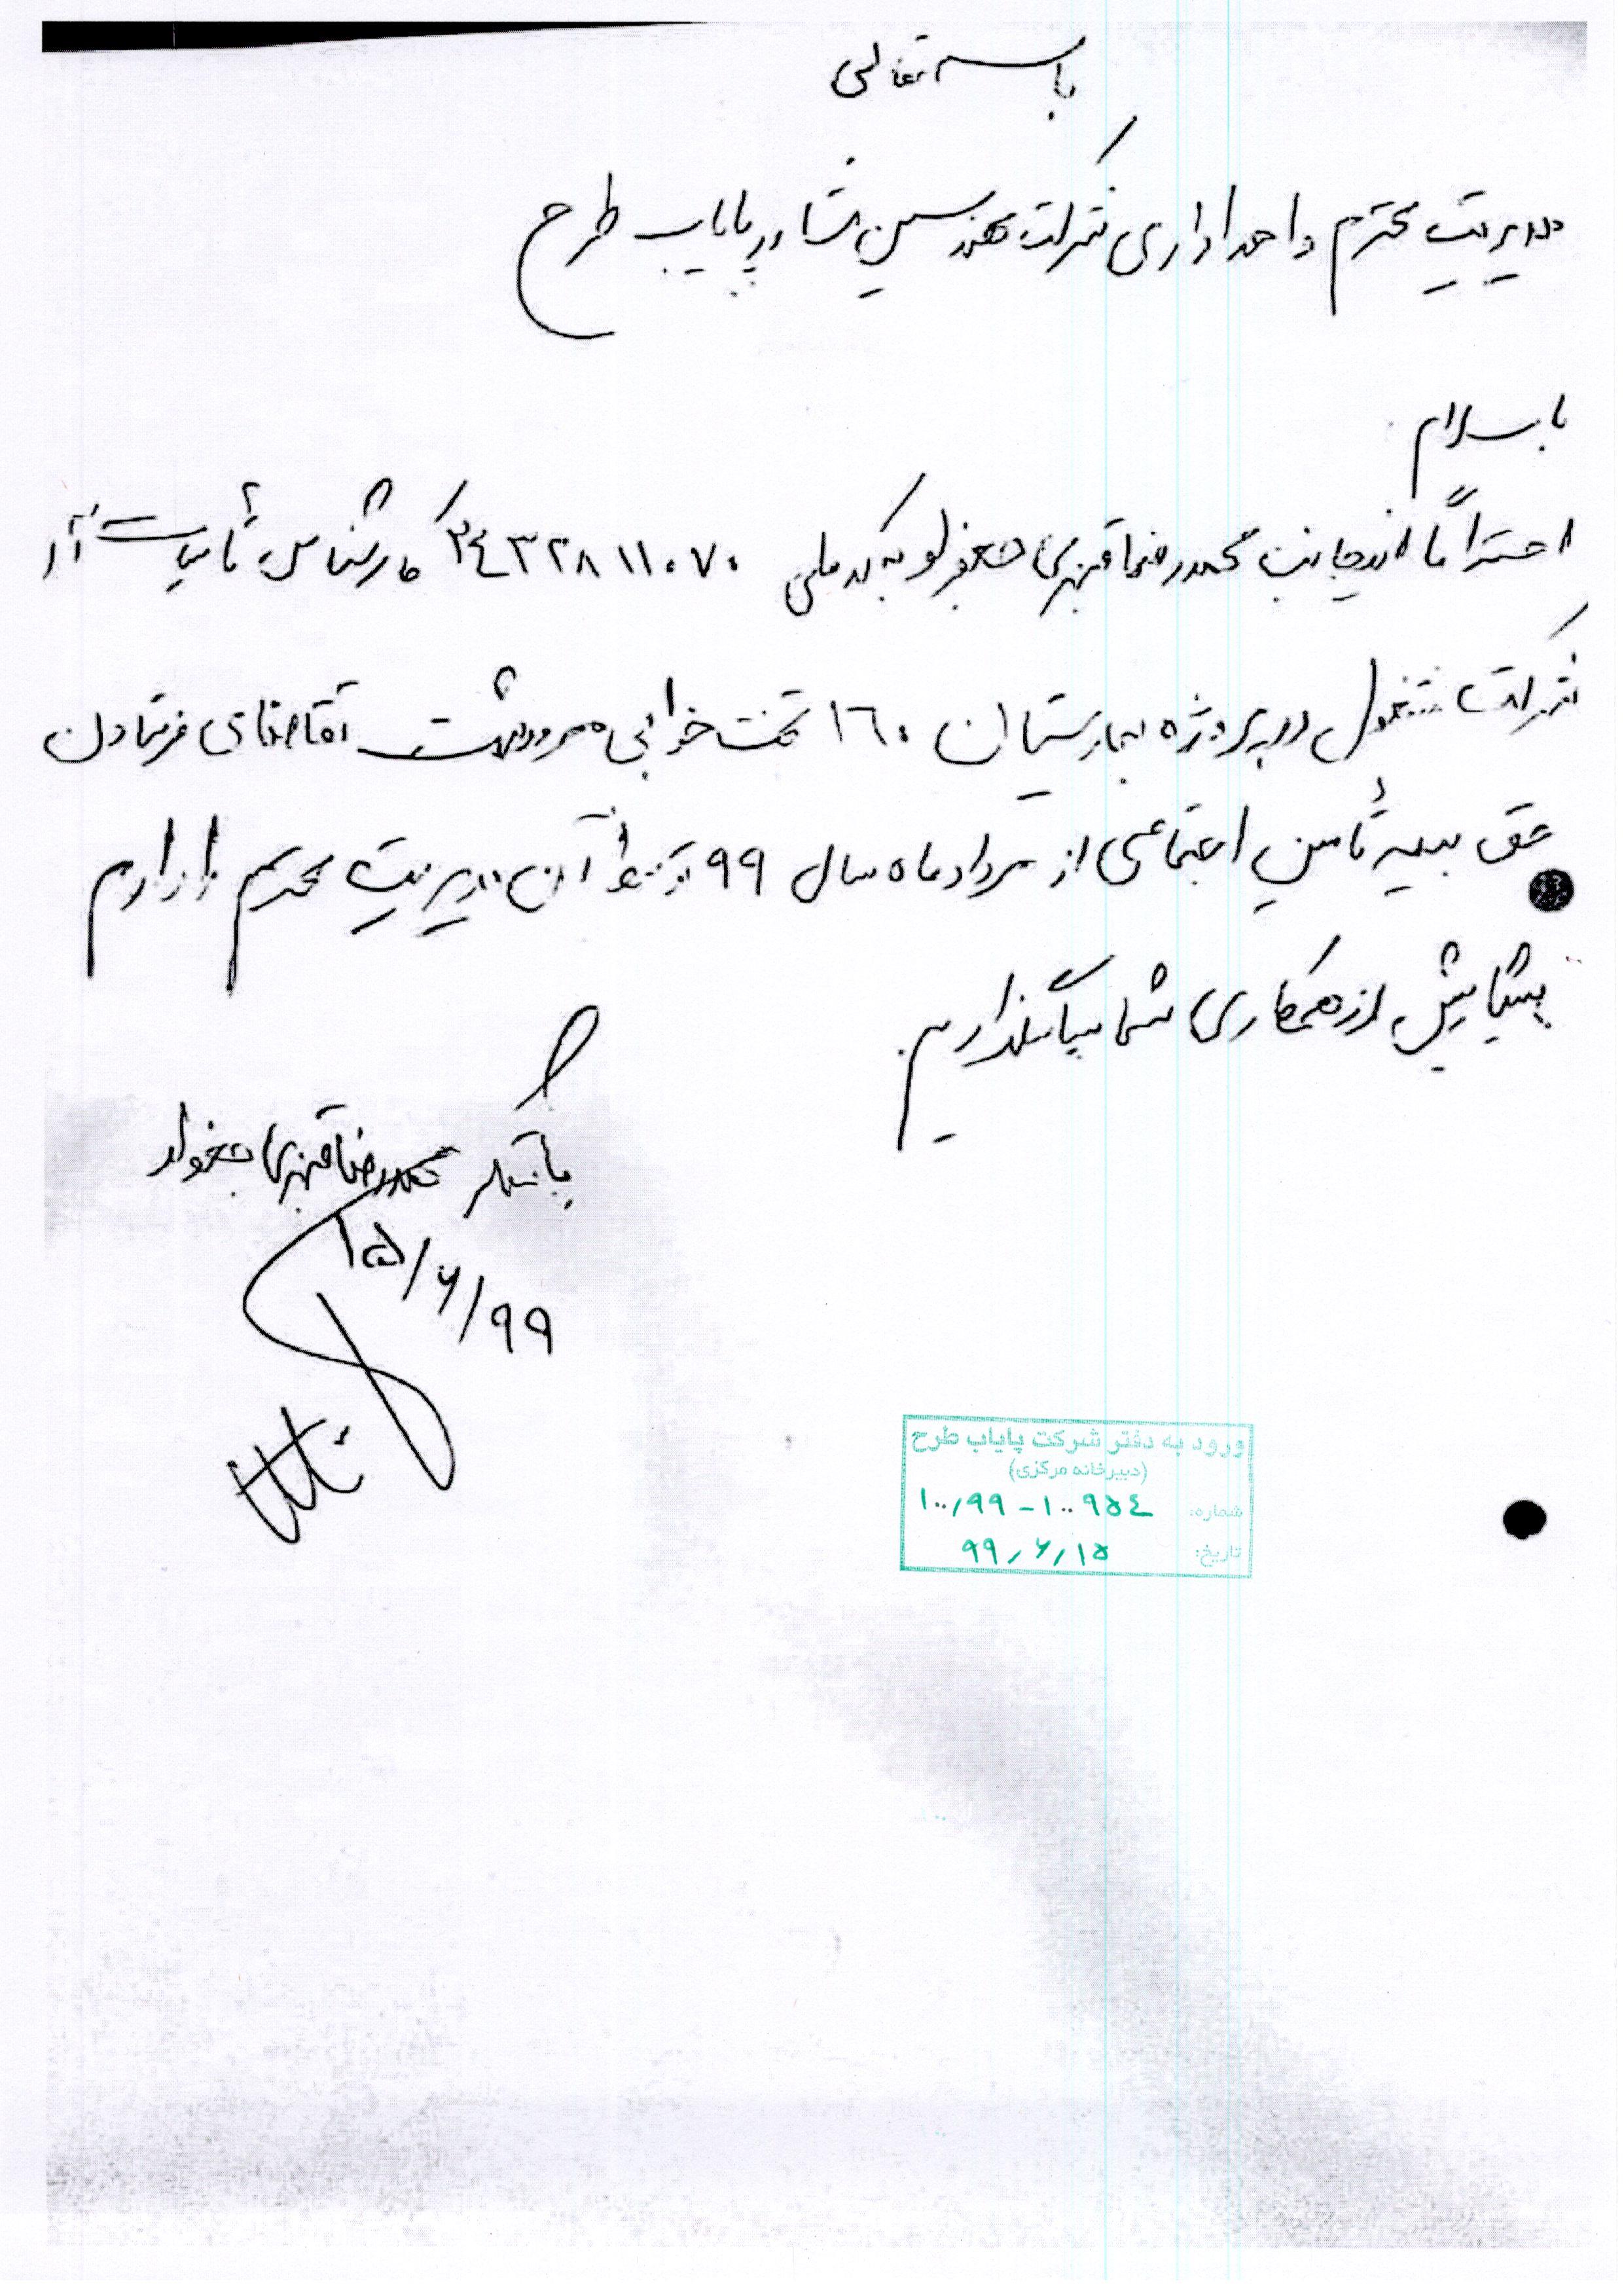 باسمه تعالی
مدیریت محترم واحد اداری شرکت مهندسین مشاور پایاب طرح
با سلام
احتراماً اینجانب محمدرضا قنبری جعفرلو به کد ملی ۲۴۳۲۸۱۱۰۷۰ کارشناس تاسیسات آن
شرکت مشغول در پروژه بیمارستان ۱۶۰ تخت خوابی مرودشت تقاضای فرستادن
حق بیمه تأمین اجتماعی از مرداد ماه سال ۹۹ توسط آن مدیریت محترم را دارم
پیشاپیش از همکاری شما سپاسگذارم.
با تشکر محمدرضا قنبری جعفرلو
۹۹/۶/۱۵
ورود به دفتر شرکت پایاب طرح
(دبیرخانه مرکزی)
شماره: ۱۰۰/۹۹-۱۰۰۹۵۴
تاریخ: ۹۹/۶/۱۵